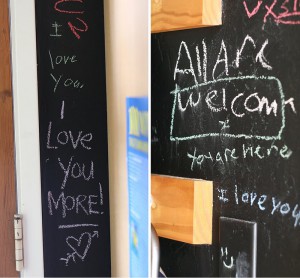 I
love
you.
I
Love
You
MORE!
All Are
Welcome
you are Here
i love you